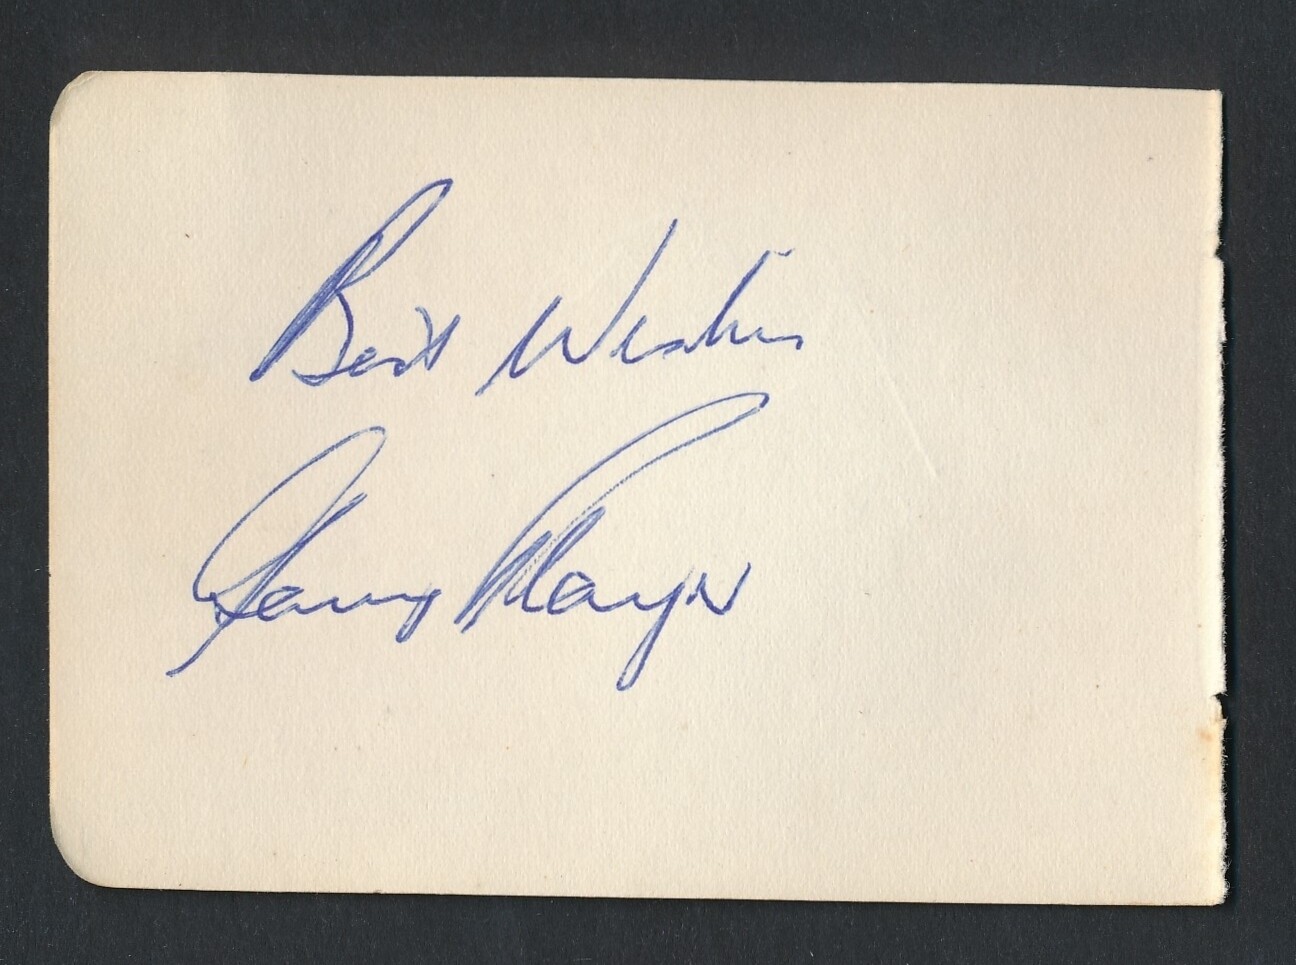 Best Wishes
Gary Player